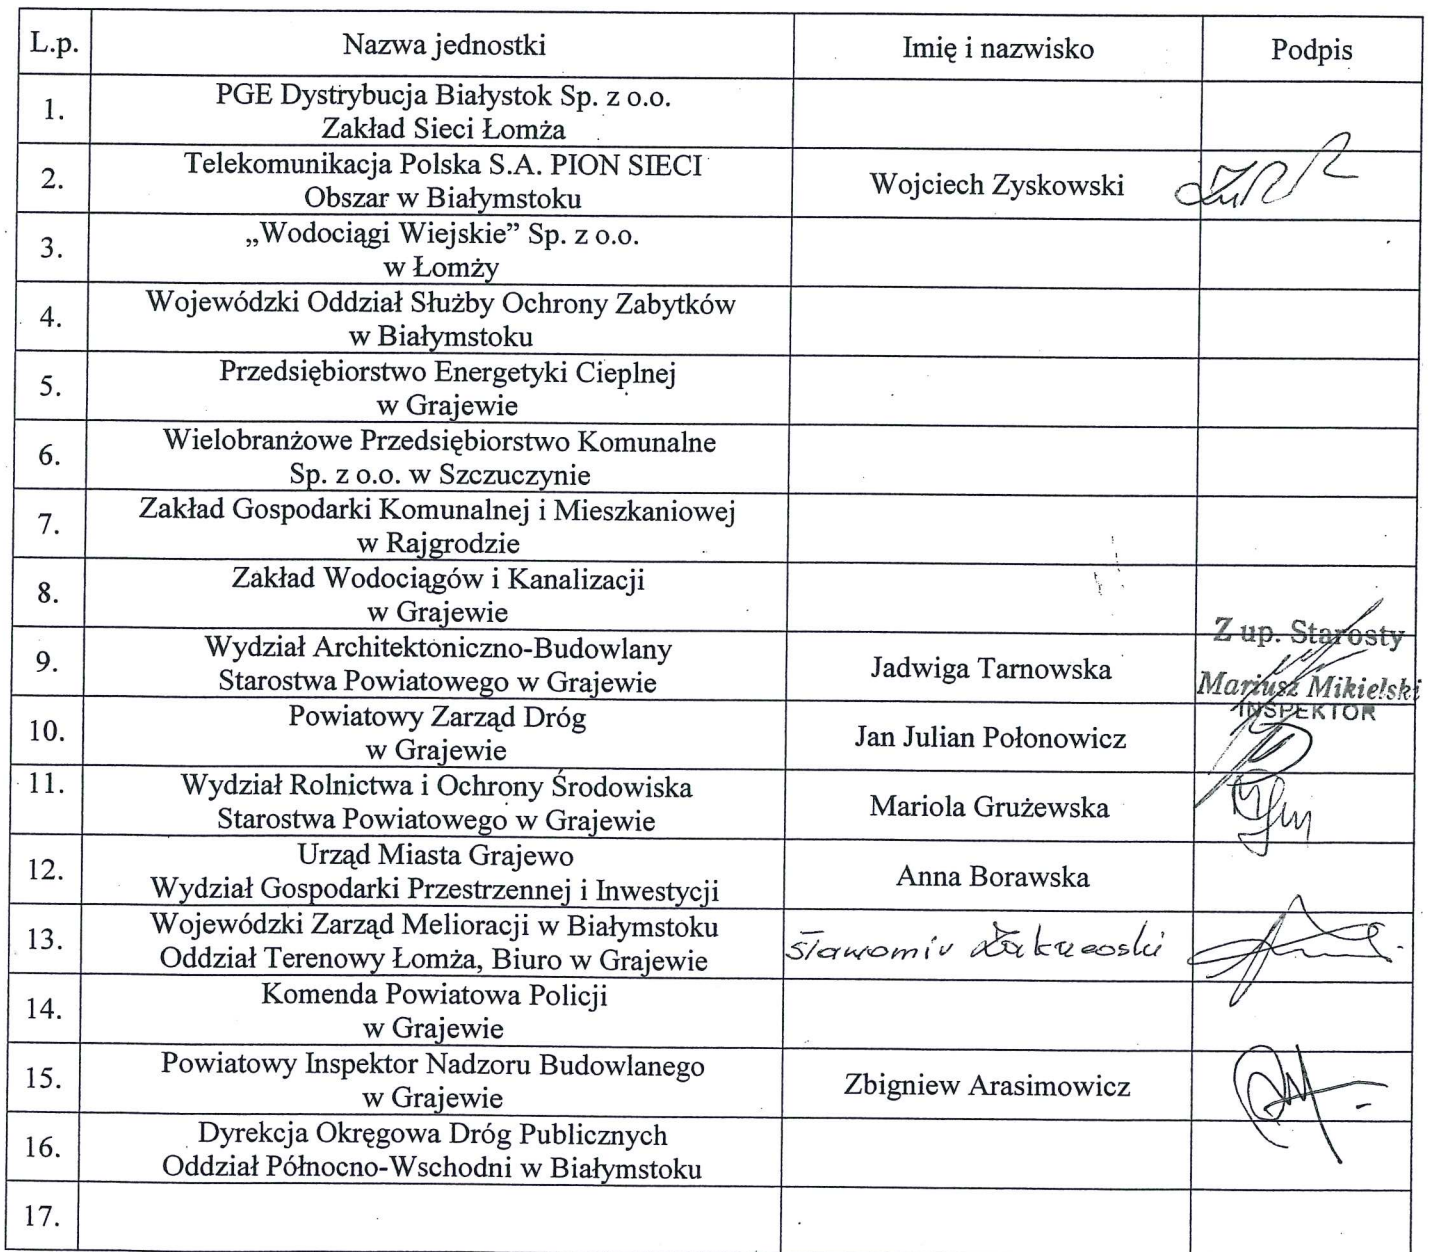 L.p. Nazwa jednostki Imię i nazwisko Podpis
1. PGE Dystrybucja Białystok Sp. z o.o.
Zakład Sieci Łomża
2. Telekomunikacja Polska S.A. PION SIECI
Obszar w Białymstoku
Wojciech Zyskowski
3. „Wodociągi Wiejskie” Sp. z o.o.
w Łomży
4. Wojewódzki Oddział Służby Ochrony Zabytków
w Białymstoku
5. Przedsiębiorstwo Energetyki Cieplnej
w Grajewie
6. Wielobranżowe Przedsiębiorstwo Komunalne
Sp. z o.o. w Szczuczynie
7. Zakład Gospodarki Komunalnej i Mieszkaniowej
w Rajgrodzie
8. Zakład Wodociągów i Kanalizacji
w Grajewie
9. Wydział Architektoniczno-Budowlany
Starostwa Powiatowego w Grajewie
Jadwiga Tarnowska
Z up. Starosty
Mariusz Mikielski
INSPEKTOR
10. Powiatowy Zarząd Dróg
w Grajewie
Jan Julian Połonowicz
11. Wydział Rolnictwa i Ochrony Środowiska
Starostwa Powiatowego w Grajewie
Mariola Grużewska
12. Urząd Miasta Grajewo
Wydział Gospodarki Przestrzennej i Inwestycji
Anna Borawska
13. Wojewódzki Zarząd Melioracji w Białymstoku
Oddział Terenowy Łomża, Biuro w Grajewie
Sławomir
14. Komenda Powiatowa Policji
w Grajewie
15. Powiatowy Inspektor Nadzoru Budowlanego
w Grajewie
Zbigniew Arasimowicz
16. Dyrekcja Okręgowa Dróg Publicznych
Oddział Północno-Wschodni w Białymstoku
17.